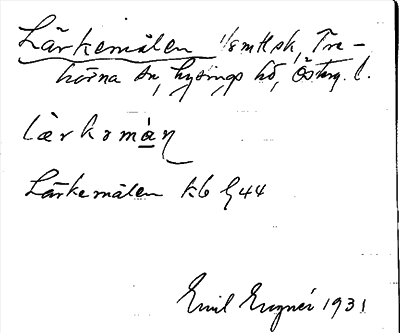 Lärkemålen 1/8 mtl sk, Tre-
hörna sn, Lysings hd, Österg. l.
lärkemån
Lärkemålen kb 644
Emil Engnér 1931